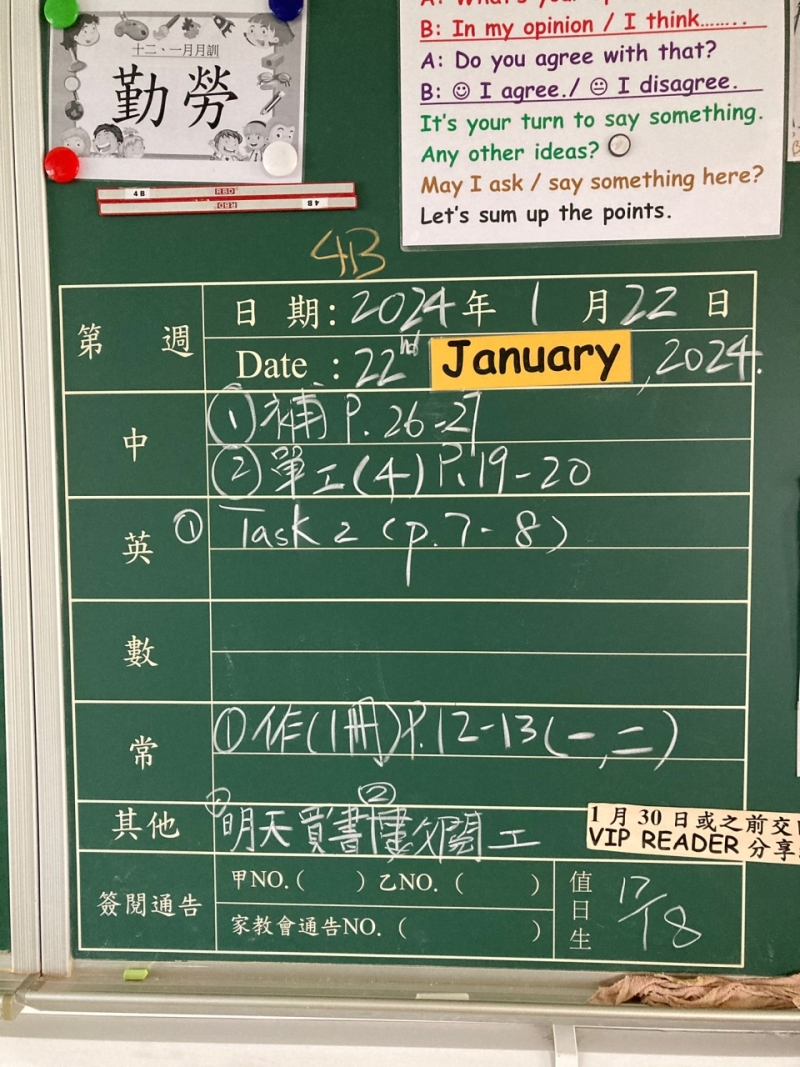 十二、一月月訓
勤勞
4B RBD
RBD 4B
B: In my opinion / I think........
A: Do you agree with that?
B: ☺ I agree./ 😐 I disagree.
It's your turn to say something.
Any other ideas?
May I ask / say something here?
Let's sum up the points.
4B
第 週
日 期: 2024 年 1 月 22 日
Date : 22nd January, 2024.
中
① 補 P. 26-27
② 單工(4) P. 19-20
英
① Task 2 (p.7-8)
數
常
① 作(1冊) P. 12-13(一,二)
其他
① 明天買書 ② 工
1月30日或之前交
VIP READER 分享
簽閱通告
甲NO.( ) 乙NO. ( )
家教會通告NO. ( )
值日生
17/18